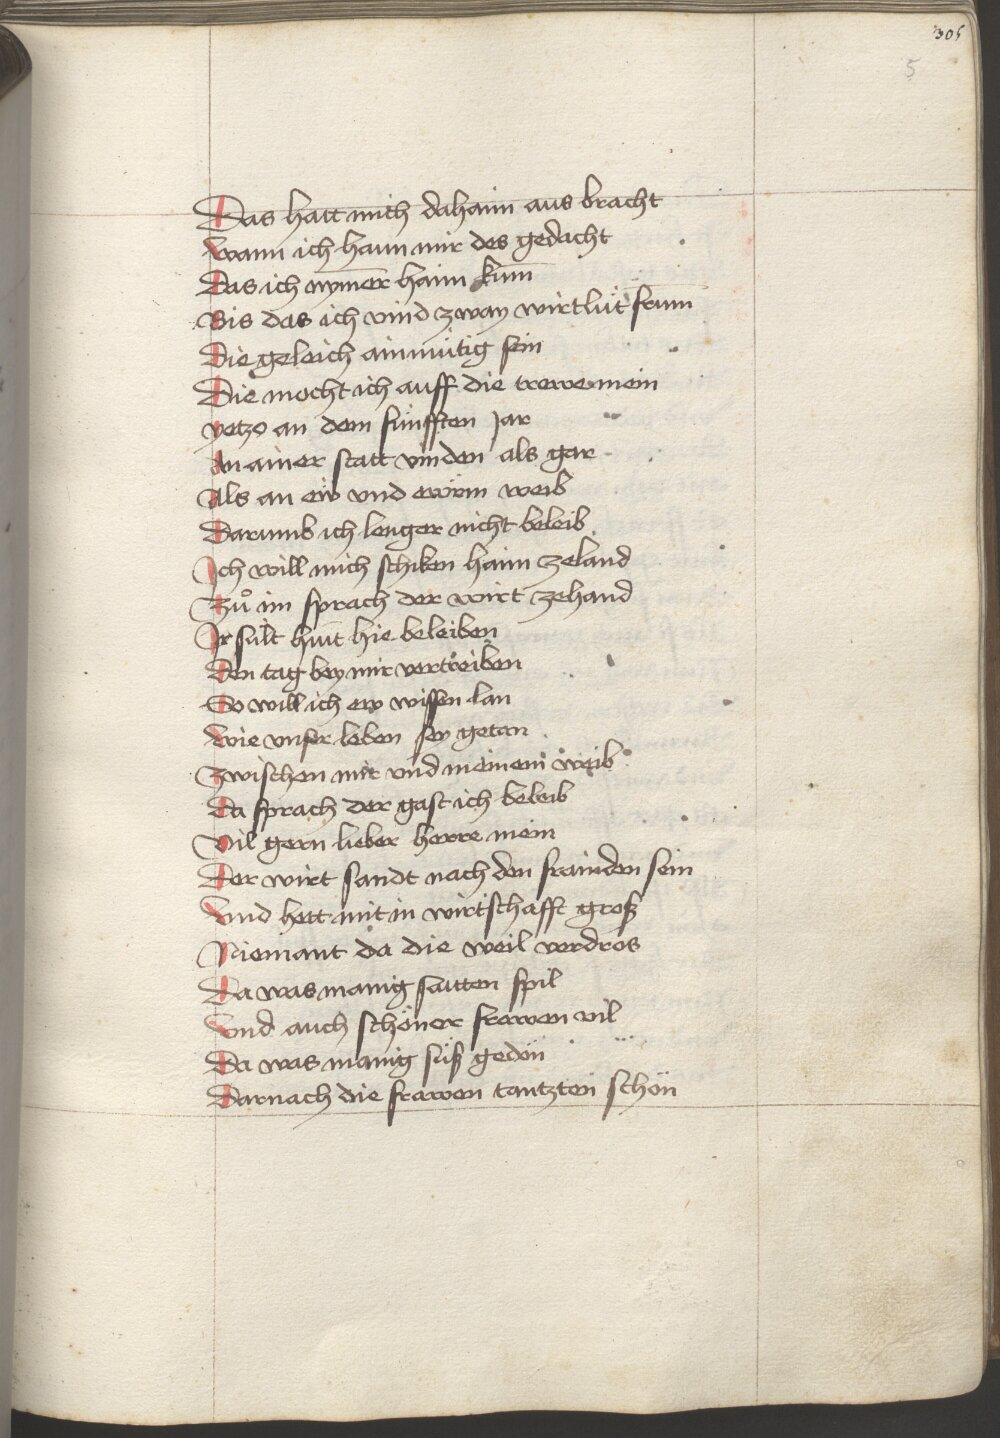 305
5
Das hatt mich dahaim aus bracht
wann ich haun mir des gedacht
Das ich nym̄er haim kum̄
Bis das ich vind zway wirtlüt frum̄
Die geleich ainmütig sein
Die mocht ich auff die trewe mein
yetzo an dem fünfften Jar
In ainer statt vinden als gar
Als an eẅ vnd ewrm weib
Darumb ich lenger nicht beleib
Ich will mich schiken haim zeland
Zů im sprach der wirt zehand
Ir sült hewt hie beleiben
Den tag bey mir vertreiben
So will ich ew wissen lan
wie vnser leben sey getan
Zwischen mir vnd meinem weib
Da sprach der gast ich beleib
Vil gern lieber herre mein
Der wirt sandt nach den frainden sein
Vnd hett mit in wirtschafft groß
Niemant da die weil verdros
Da was manig saitten spil
Vnd auch schöner frawen vil
Da was manig süß gedön
Darnach die frawen tantzten schön